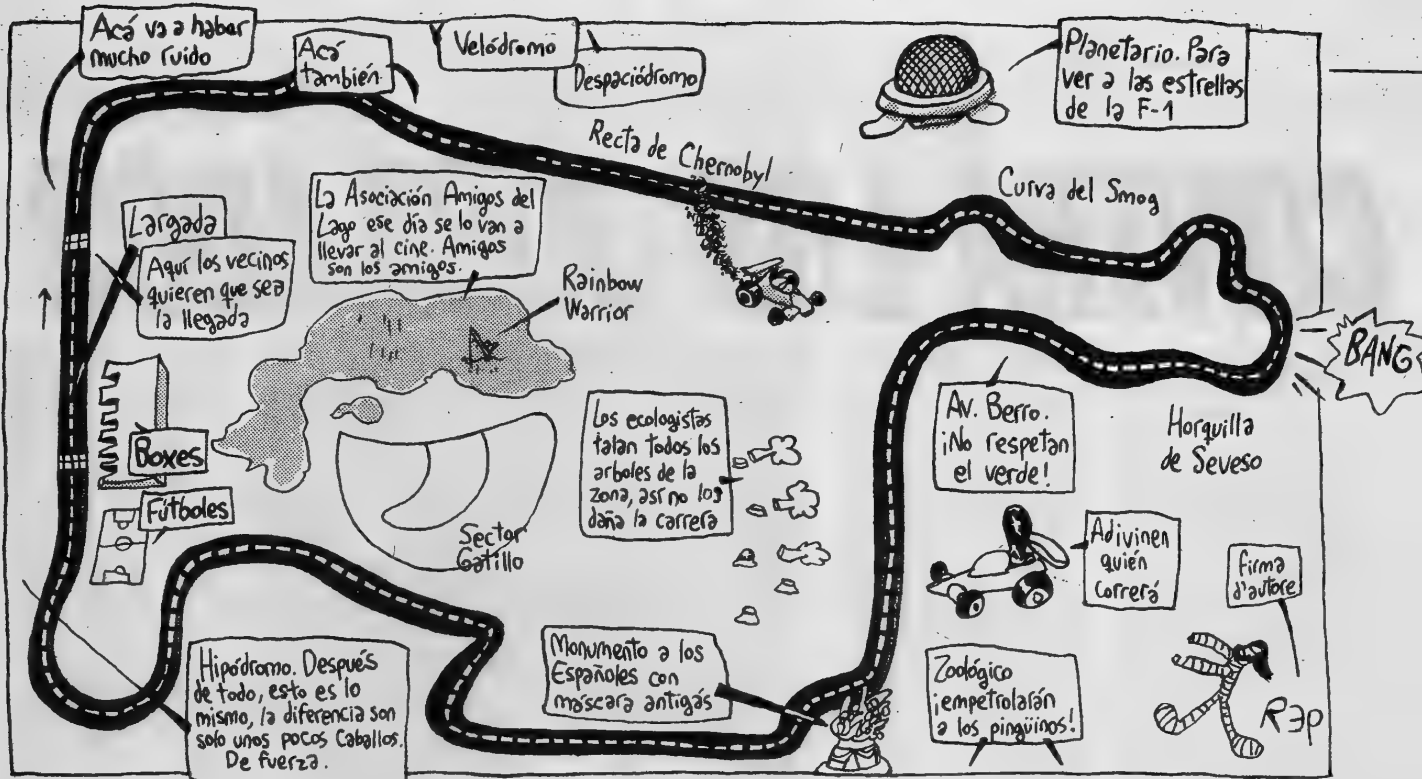 Acá va a haber
mucho ruido
Acá
también
Velódromo
Despaciódromo
Planetario. Para
ver a las estrellas
de la F-1
Recta de Chernobyl
Curva del Smog
Largada
Aquí los vecinos
quieren que sea
la llegada
La Asociación Amigos del
Lago ese día se lo van a
llevar al cine. Amigos
son los amigos.
Rainbow
Warrior
BANG
Boxes
Fútboles
Sector
Gatillo
Los ecologistas
talan todos los
arboles de la
zona, así no los
daña la carrera
Av. Berro.
¡No respetan
el verde!
Horquilla
de Seveso
Adivinen
quién
correrá
firma
d'autore
Hipódromo. Después
de todo, esto es lo
mismo, la diferencia son
solo unos pocos caballos.
De fuerza.
Monumento a los
Españoles con
máscara antigás
Zoológico
¡empetrolarán
a los pingüinos!
Rep